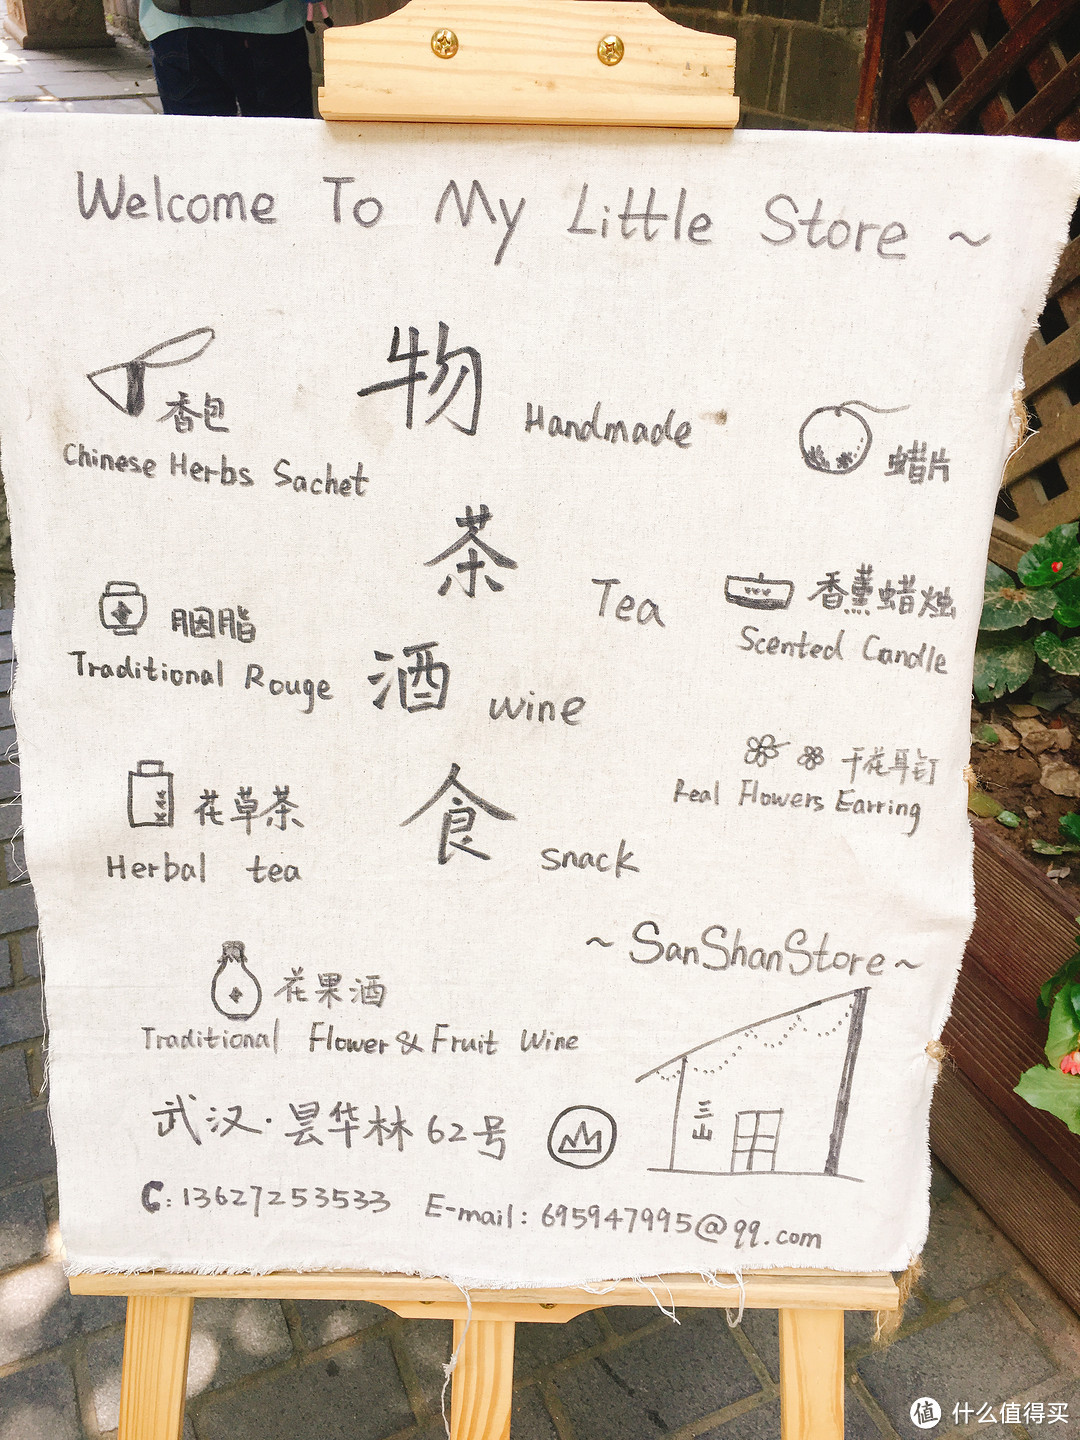 Welcome To My Little Store ~
物 Handmade
香包
Chinese Herbs Sachet
蜡片
茶 Tea
香薰蜡烛
Scented Candle
胭脂
Traditional Rouge
酒 wine
干花耳钉
Real Flowers Earring
花草茶
Herbal tea
食 snack
~ SanShanStore ~
花果酒
Traditional Flower & Fruit Wine
三山
武汉·昙华林62号
C: 13627253533 E-mail: 695947995@qq.com
值 什么值得买